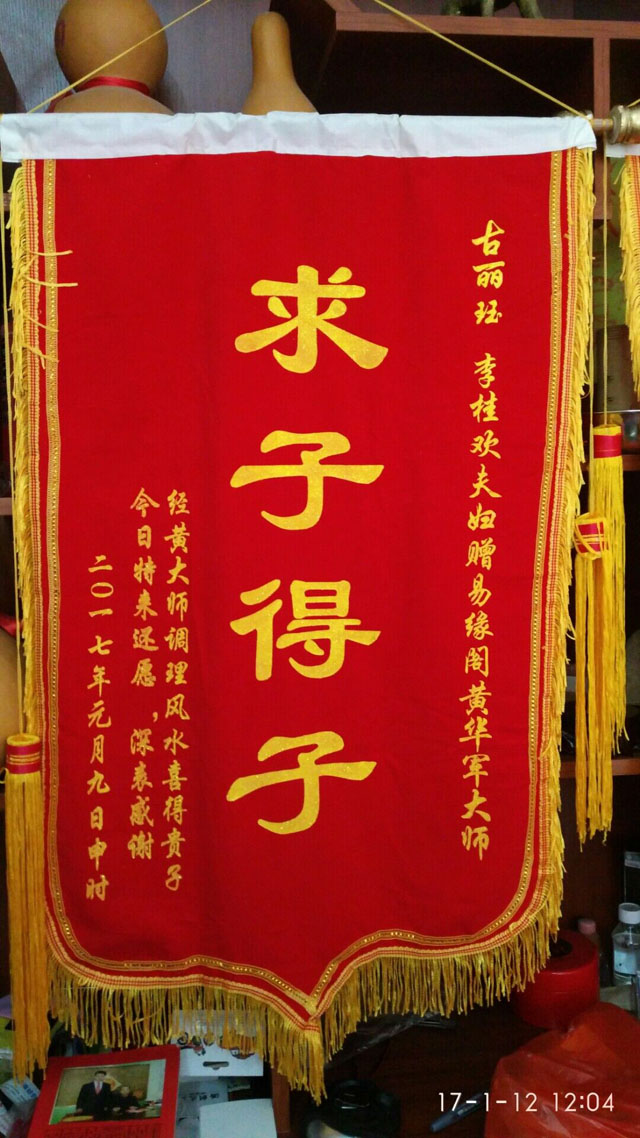 古丽珏 李桂欢夫妇赠易缘阁黄华军大师
求子得子
经黄大师调理风水喜得贵子
今日特来还愿，深表感谢
二〇一七年元月九日申时
17-1-12 12:04